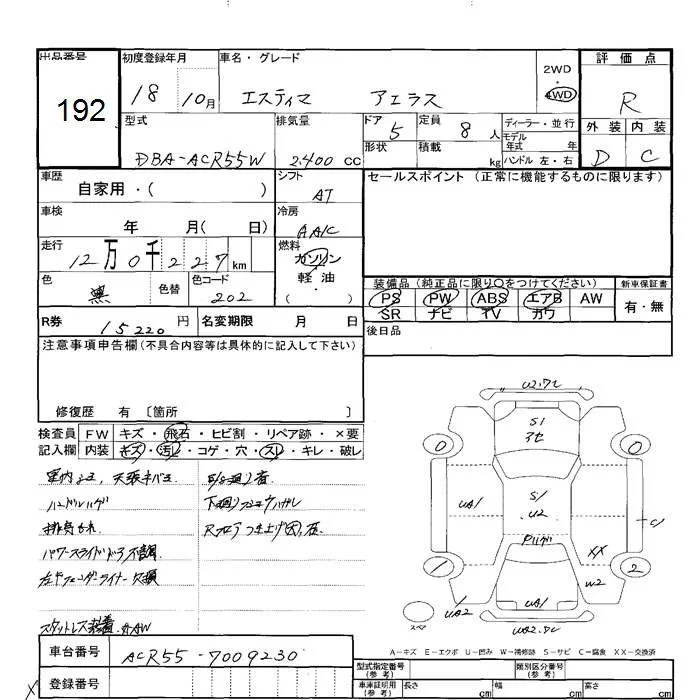 出品番号 192
初度登録年月 18 10月
車名・グレード エスティマ アエラス
2WD 4WD
評価点 R
外装 D 内装 C
型式 DBA-ACR55W
排気量 2.400 cc
ドア 5
形状
定員 8 人
積載 kg
ディーラー・並行
モデル年式 年
ハンドル 左・右
車歴 自家用・( )
シフト AT
セールスポイント (正常に機能するものに限ります)
車検 年 月( 日)
冷房 AAC
走行 12万0千227km
燃料 ガソリン 軽・油 ( )
色 黒 色替 色コード 202
装備品 (純正品に限り○をつけてください)
PS PW ABS エアB AW
SR ナビ TV カワ
新車保証書 有・無
R券 15220 円 名変期限 月 日
後日品
注意事項申告欄 (不具合内容等は具体的に記入して下さい)
修復歴 有 〔箇所 〕
検査員記入欄 FW キズ・飛石・ヒビ割・リペア跡・×要
内装 キズ・汚レ・コゲ・穴・スレ・キレ・破レ
天張キバミ
ハンドルハゲ
パワースライドドア不調
左Fフェンダーライナー欠損
スタットレス装着
下廻り
Rフロアつき上げ
U2・ワレ
S1
アセ
0 0
S1
U2
UA1
C
XX
W2
1 2
UA1
UA2
UA2・ワレ
スペア
A-キズ E-エクボ U-凹み W-補修跡 S-サビ C-腐食 XX-交換済
車台番号 ACR55-7009230
登録番号
型式指定番号(参考) 類別区分番号(参考)
車庫証明用(参考) 長さ cm 幅 cm 高さ cm